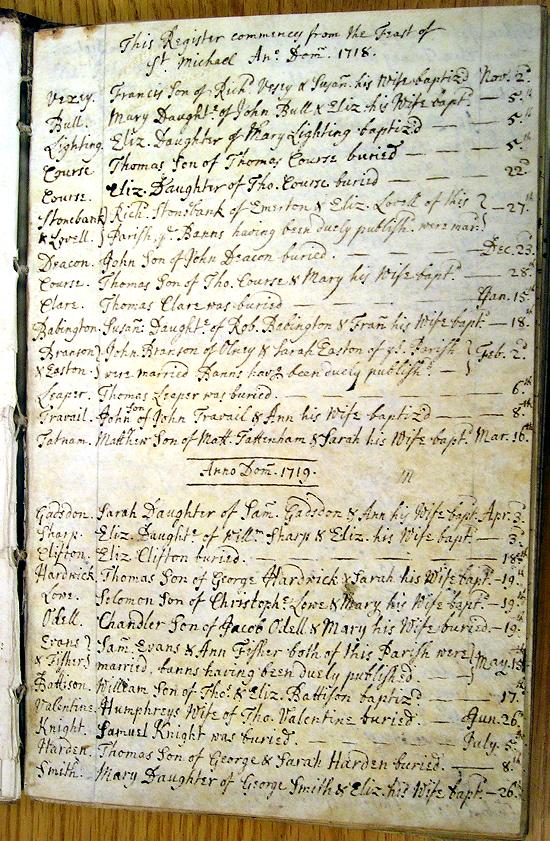 This Register commences from the Feast of
St. Michael Ano. Dom. 1718.
Vezey. Frances Son of Rich. Vesey & Susan. his Wife baptizd Nov. 2.
Bull. Mary Daughtr. of John Bull & Eliz. his Wife bapt. — 5.th
Lighting. Eliz. Daughter of Mary Lighting baptiz'd — — 5.th
Course Thomas Son of Thomas Course buried — — 5.th
Course. Eliz. Daughter of Tho. Course buried — — 22.d
Stonebank Rich. Stonebank of Emerton & Eliz. Lovell of this — 27.th
& Lovell. Parish, ye. Banns having been duely publish. were mar.d
Deacon. John Son of John Deacon buried. — — Dec. 23.
Course. Thomas Son of Tho. Course & Mary his Wife bapt.d — 28.th
Clare. Thomas Clare was buried — — — Jan. 15.th
Babington. Susan. Daught.r of Rob. Babington & Fran. his Wife bapt. — 18.th
Branson John Branson of Olney & Sarah Easton of ys. Parish Feb. 2.d
& Easton. were married Banns have been duely publish.d —
Leaper. Thomas Leeper was buried. — — — 6.th
Travail. John Son of John Travail & Ann his Wife baptized — 8.th
Tatnam. Matthew Son of Matt. Tattenham & Sarah his Wife bapt. Mar. 16.th
Anno Dom. 1719.
Gadsdon. Sarah Daughter of Sam. Gadsdon & Ann his Wife bapt. Apr. 3.
Sharp. Eliz. Daught.r of Will.m Sharp & Eliz. his Wife bapt. — 3.d
Clifton. Eliz Clifton buried. — — — — 18.th
Hardwick. Thomas Son of George Hardwick & Sarah his Wife bapt. — 19.th
Lowe. Solomon Son of Christoph.r Lowe & Mary his Wife bapt. — 19.th
Odell. Chandler Son of Jacob Odell & Mary his Wife buried — 19.th
Evans Sam. Evans & Ann Fisher both of this Parish were May. 15.th
& Fisher married, banns having been duely published. —
Battison. William Son of Tho. & Eliz. Battison baptiz.d — 17.th
Valentine. Humphreys Wife of Tho. Valentine buried. — Jun. 26.th
Knight. Samuel Knight was buried. — — July. 5.th
Harden. Thomas Son of George & Sarah Harden buried. — 8.th
Smith. Mary Daughter of George Smith & Eliz. his Wife bapt. — 26.th